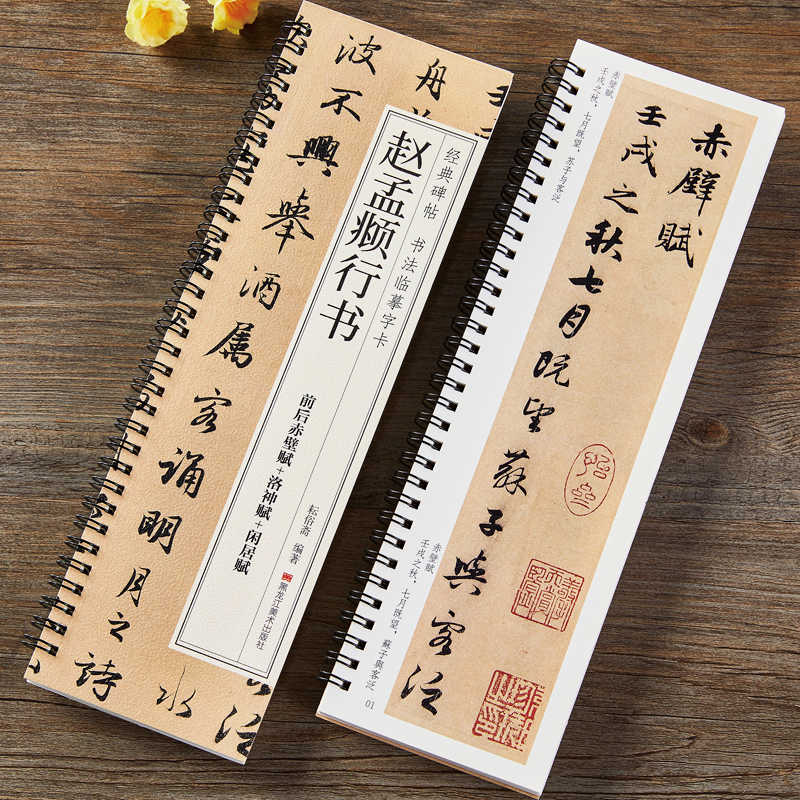 经典碑帖 书法临摹字卡
赵孟𫖯行书
前后赤壁赋+洛神赋+闲居赋
耘俗斋 编著
黑龙江美术出版社
舟
波不興舉酒属客誦明月之詩
水
泛
赤壁賦
壬戌之秋七月既望蘇子與客泛
赤壁赋
壬戌之秋，七月既望，苏子与客泛
赤壁賦
壬戌之秋，七月既望，蘇子與客泛
01